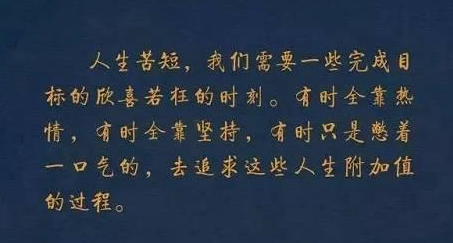 人生苦短，我们需要一些完成目
标的欣喜若狂的时刻。有时全靠热
情，有时全靠坚持，有时只是憋着
一口气的，去追求这些人生附加值
的过程。